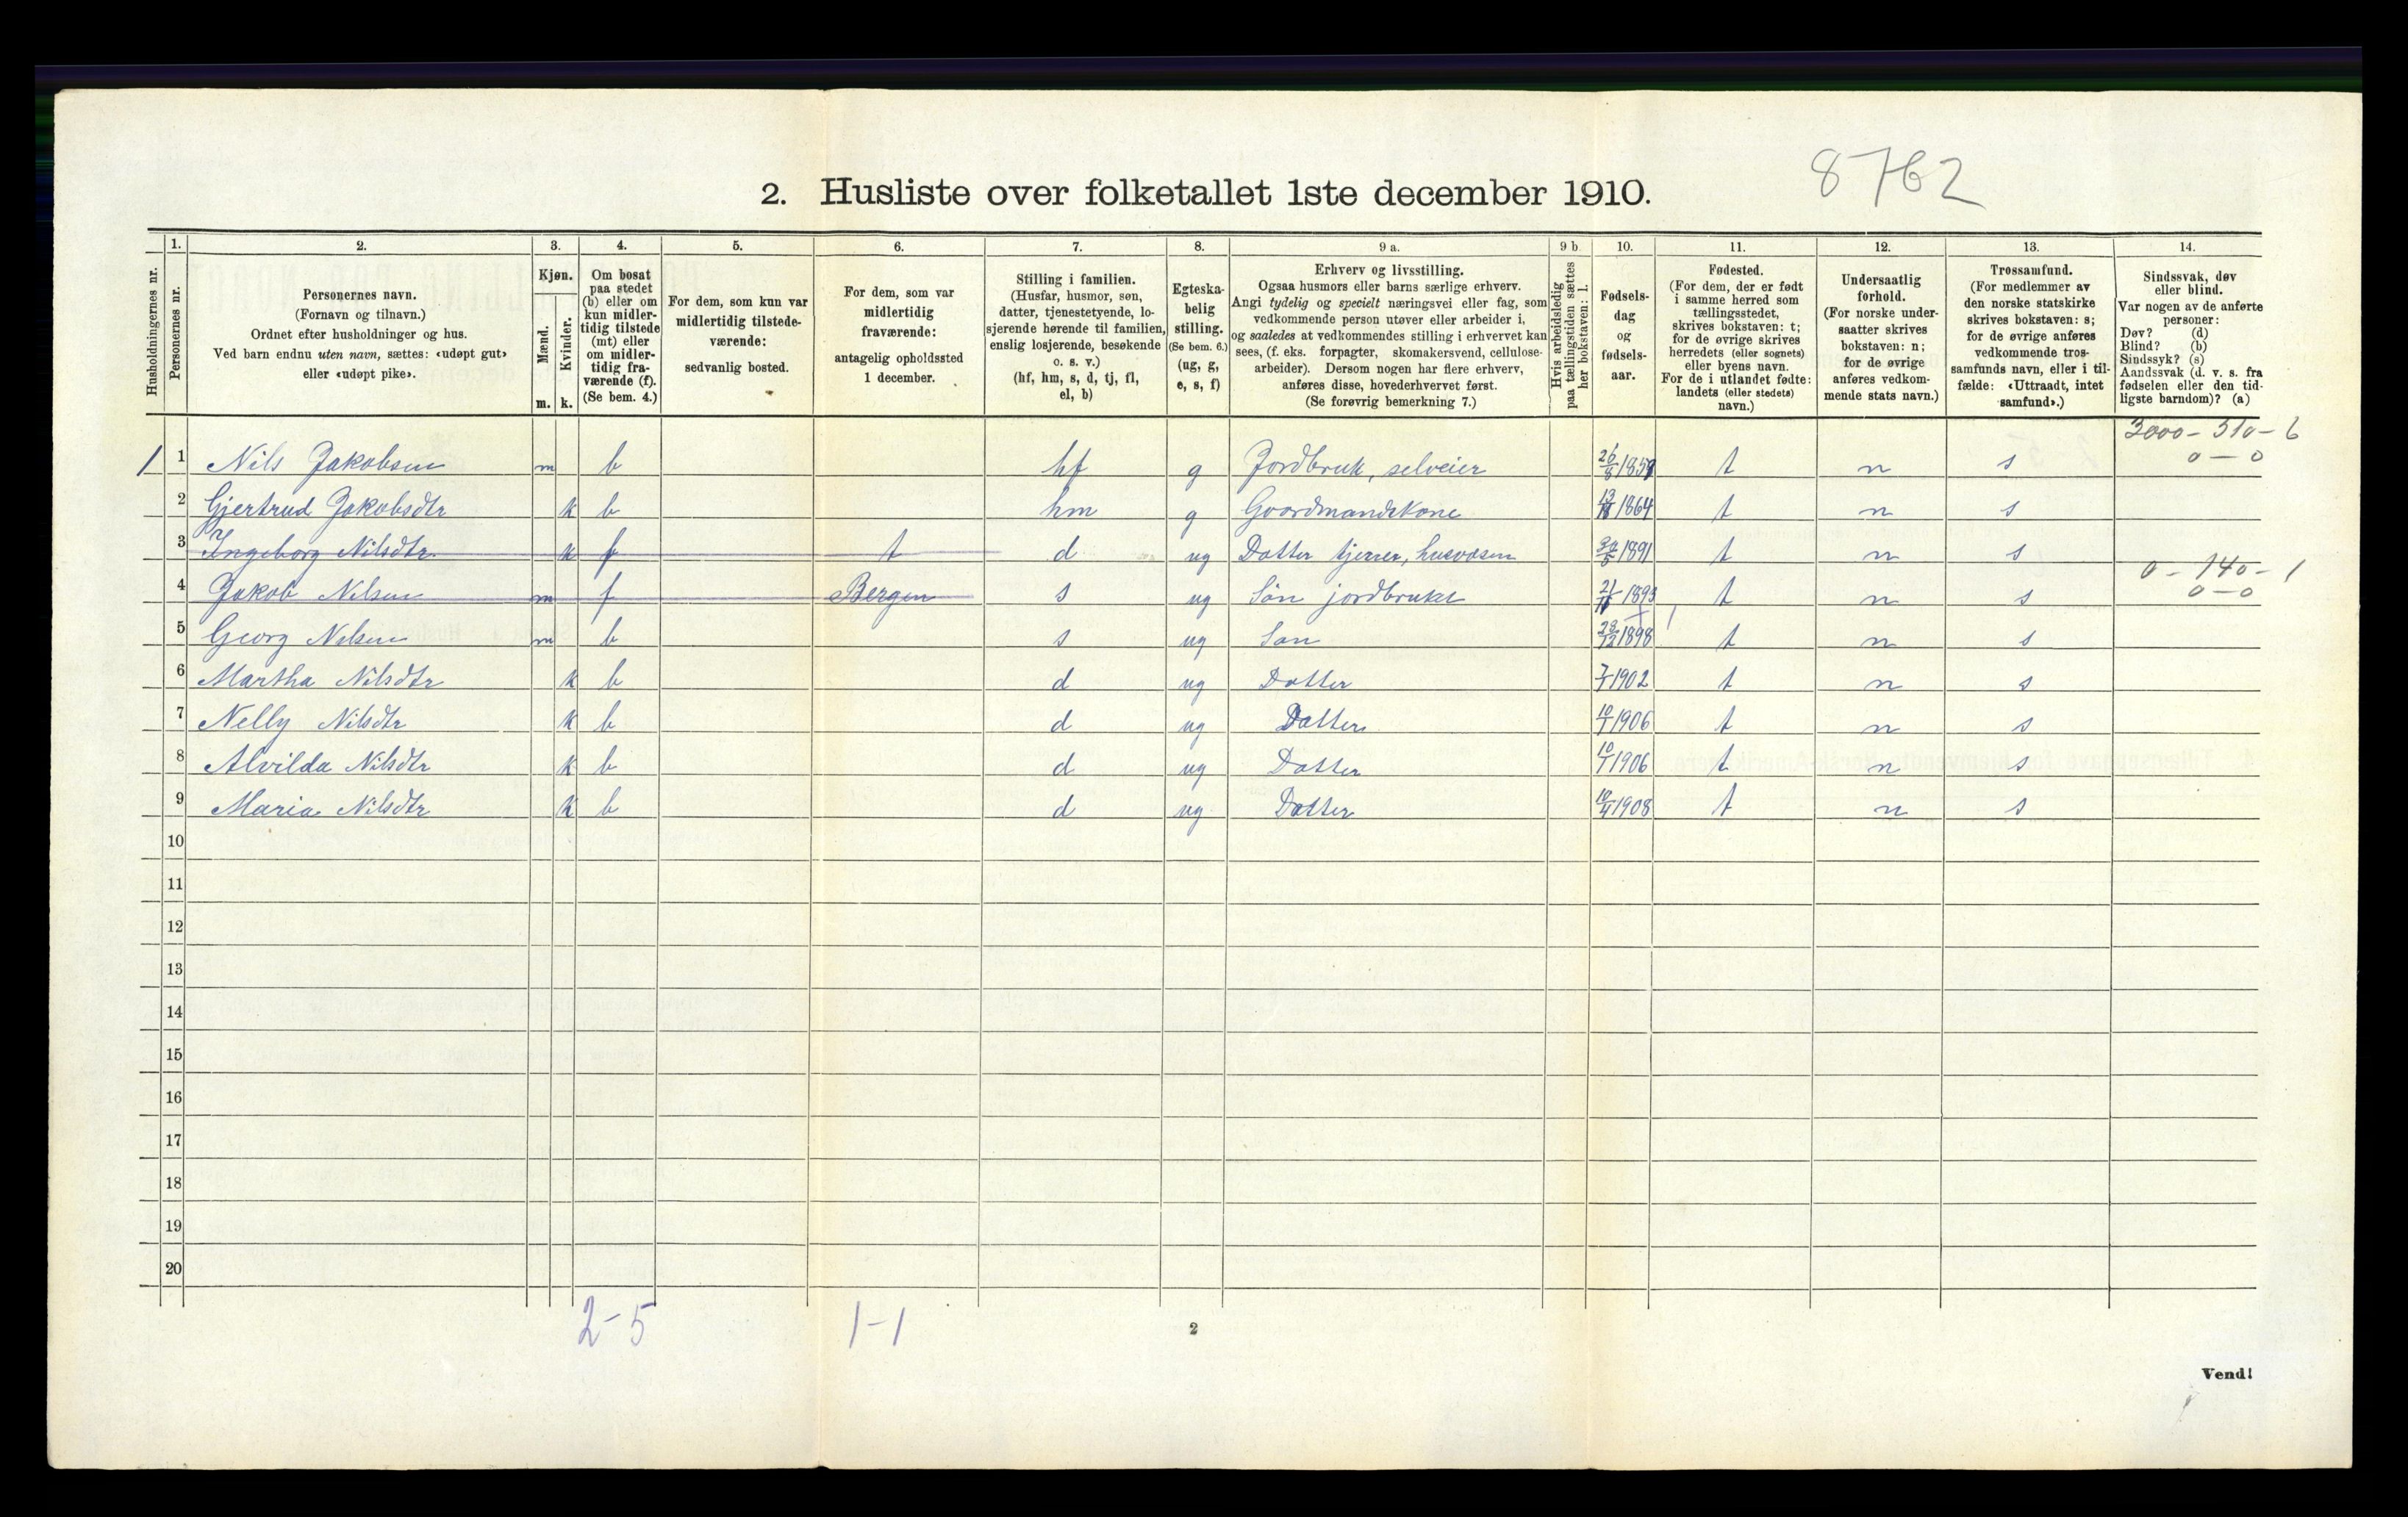 8762
2. Husliste over folketallet 1ste december 1910.
Husholdningernes nr.
1.
Personernes nr.
2.
Personernes navn.
(Fornavn og tilnavn.)
Ordnet efter husholdninger og hus.
Ved barn endnu uten navn, sættes: «udøpt gut»
eller «udøpt pike».
3.
Kjøn.
Mænd.
Kvinder.
m. k.
4.
Om bosat
paa stedet
(b) eller om
kun midler-
tidig tilstede
(mt) eller
om midler-
tidig fra-
værende (f).
(Se bem. 4.)
5.
For dem, som kun var
midlertidig tilstede-
værende:
sedvanlig bosted.
6.
For dem, som var
midlertidig
fraværende:
antagelig opholdssted
1 december.
7.
Stilling i familien.
(Husfar, husmor, søn,
datter, tjenestetyende, lo-
sjerende hørende til familien,
enslig losjerende, besøkende
o. s. v.)
(hf, hm, s, d, tj, fl,
el, b)
8.
Egteska-
belig
stilling.
(Se bem. 6.)
(ug, g,
e, s, f)
9 a.
Erhverv og livsstilling.
Ogsaa husmors eller barns særlige erhverv.
Angi tydelig og specielt næringsvei eller fag, som
vedkommende person utøver eller arbeider i,
og saaledes at vedkommendes stilling i erhvervet kan
sees, (f. eks. forpagter, skomakersvend, cellulose-
arbeider). Dersom nogen har flere erhverv,
anføres disse, hovederhvervet først.
(Se forøvrig bemerkning 7.)
9 b.
Hvis arbeidsledig
paa tællingstiden sættes
her bokstaven: l.
10.
Fødsels-
dag
og
fødsels-
aar.
11.
Fødested.
(For dem, der er født
i samme herred som
tællingsstedet,
skrives bokstaven: t;
for de øvrige skrives
herredets (eller sognets)
eller byens navn.
For de i utlandet fødte:
landets (eller stedets)
navn.)
12.
Undersaatlig
forhold.
(For norske under-
saatter skrives
bokstaven: n;
for de øvrige
anføres vedkom-
mende stats navn.)
13.
Trossamfund.
(For medlemmer av
den norske statskirke
skrives bokstaven: s;
for de øvrige anføres
vedkommende tros-
samfunds navn, eller i til-
fælde: «Uttraadt, intet
samfund».)
14.
Sindssvak, døv
eller blind.
Var nogen av de anførte
personer:
Døv? (d)
Blind? (b)
Sindssyk? (s)
Aandssvak (d. v. s. fra
fødselen eller den tid-
ligste barndom)? (a)
3000 - 510 - 6
1 1 Nils Jakobsen m b hf g Jordbruk, selveier 26/8 185 t n s 0 - 0
2 Gjertrud Jakobsdtr k b hm g Gaardmandskone 1864 t n s
3 Ingeborg Nilsdtr. k f t d ug Datter tjener, husvæsen 1891 t n s
0 - 140 - 1
4 Jakob Nilsen m f Bergen s ug Søn jordbruker 1893 t n s 0 - 0
5 Georg Nilsen m b s ug Søn 28/12 1898 t n s
6 Martha Nilsdtr k b d ug Datter 7/7 1902 t n s
7 Nelly Nilsdtr k b d ug Datter 10/1 1906 t n s
8 Alvilda Nilsdtr k b d ug Datter 10/1 1906 t n s
9 Maria Nilsdtr k b d ug Datter 10/4 1908 t n s
10
11
12
13
14
15
16
17
18
19
20
2-5 1-1
2
Vend!